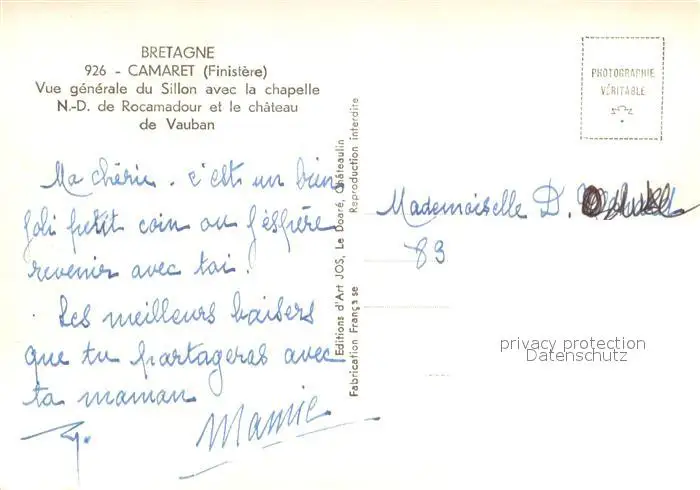 BRETAGNE
926 - CAMARET (Finistère)
Vue générale du Sillon avec la chapelle
N.-D. de Rocamadour et le château
de Vauban
Ma chérie. c'est un bien
joli petit coin ou j'éspère
revenir avec toi.
Les meilleurs baisers
que tu partageras avec
ta maman
Mamie
Editions d'Art JOS, Le Doaré, Châteaulin
Fabrication Française Reproduction interdite
PHOTOGRAPHIE
VÉRITABLE
Mademoiselle D.
83
privacy protection
Datenschutz